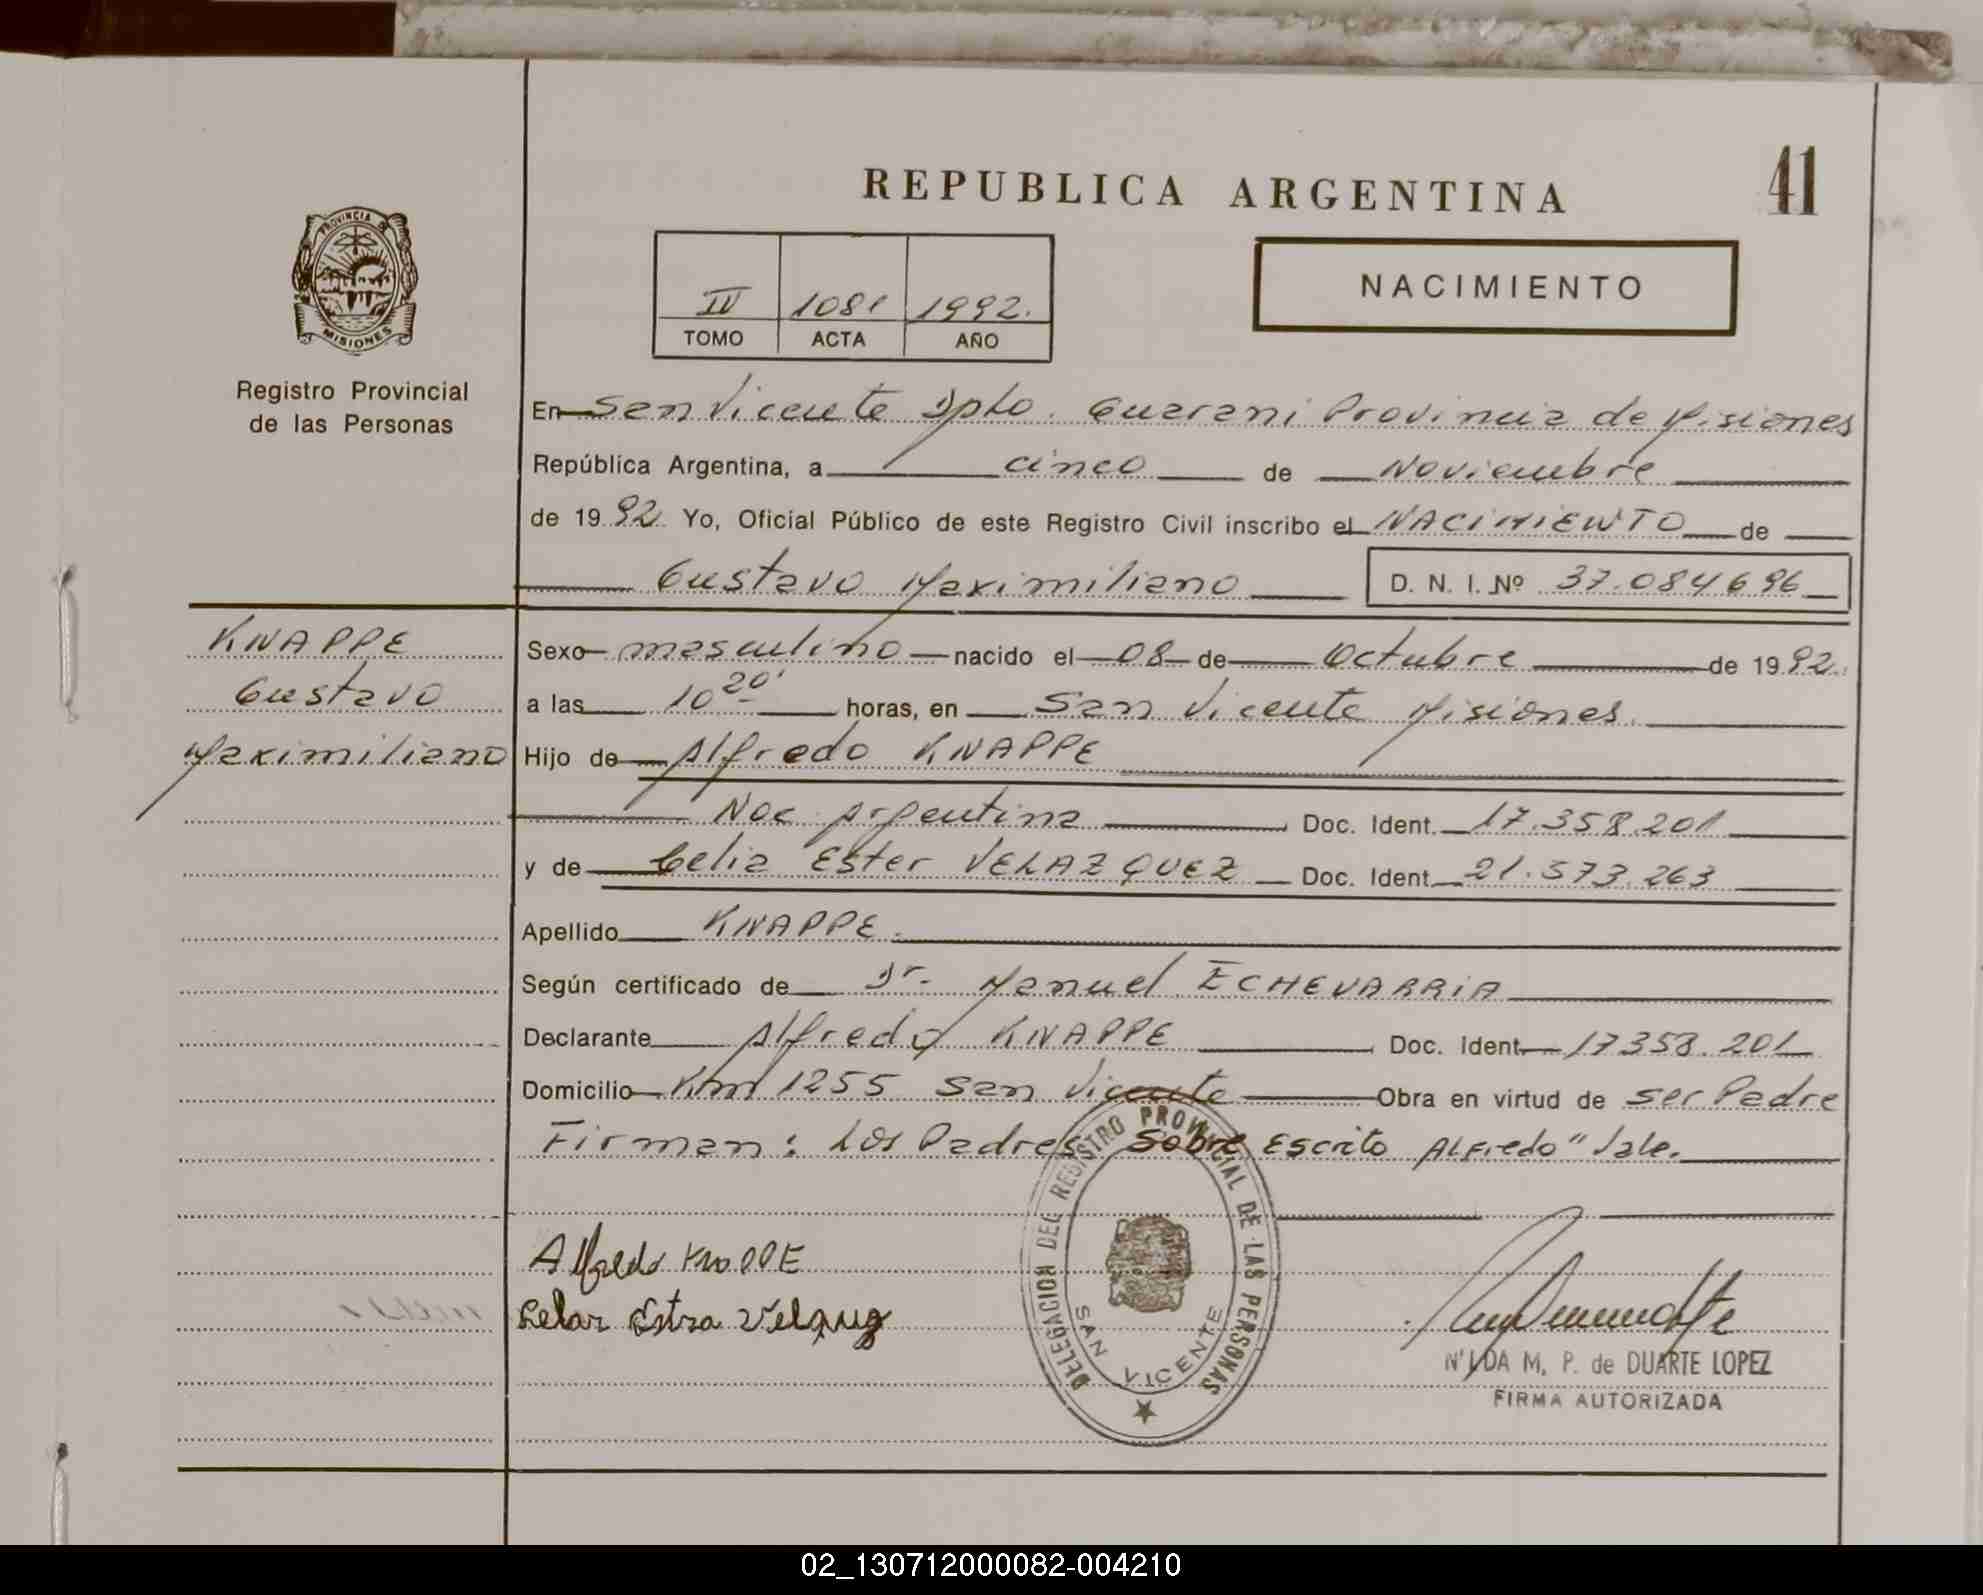 REPUBLICA ARGENTINA
41
PROVINCIA DE MISIONES
Registro Provincial
de las Personas
IV 1081 1992.
TOMO ACTA AÑO
NACIMIENTO
En San Vicente Dpto. Guarani Provincia de Misiones
República Argentina, a cinco de Noviembre
de 1992 Yo, Oficial Público de este Registro Civil inscribo el NACIMIENTO de
Gustavo Maximiliano D. N. I. Nº 37.084696
KNAPPE
Gustavo
Maximiliano
Sexo masculino nacido el 08 de Octubre de 1992.
a las 10 20' horas, en San Vicente Misiones.
Hijo de Alfredo KNAPPE
Nac. Argentina Doc. Ident. 17.358.201
y de Celia Ester VELAZQUEZ Doc. Ident. 21.573.263
Apellido KNAPPE.
Según certificado de Dr. Manuel ECHEVARRIA
Declarante Alfredo KNAPPE Doc. Ident. 17358.201
Domicilio Km 1255 San Vicente Obra en virtud de ser Padre
Firman: Los Padres Sobre Escrito ALFredo" Vale.
Alfredo KNAPPE
DELEGACION DEL REGISTRO PROVINCIAL DE LAS PERSONAS
SAN VICENTE
NILDA M. P. de DUARTE LOPEZ
FIRMA AUTORIZADA
02_130712000082-004210